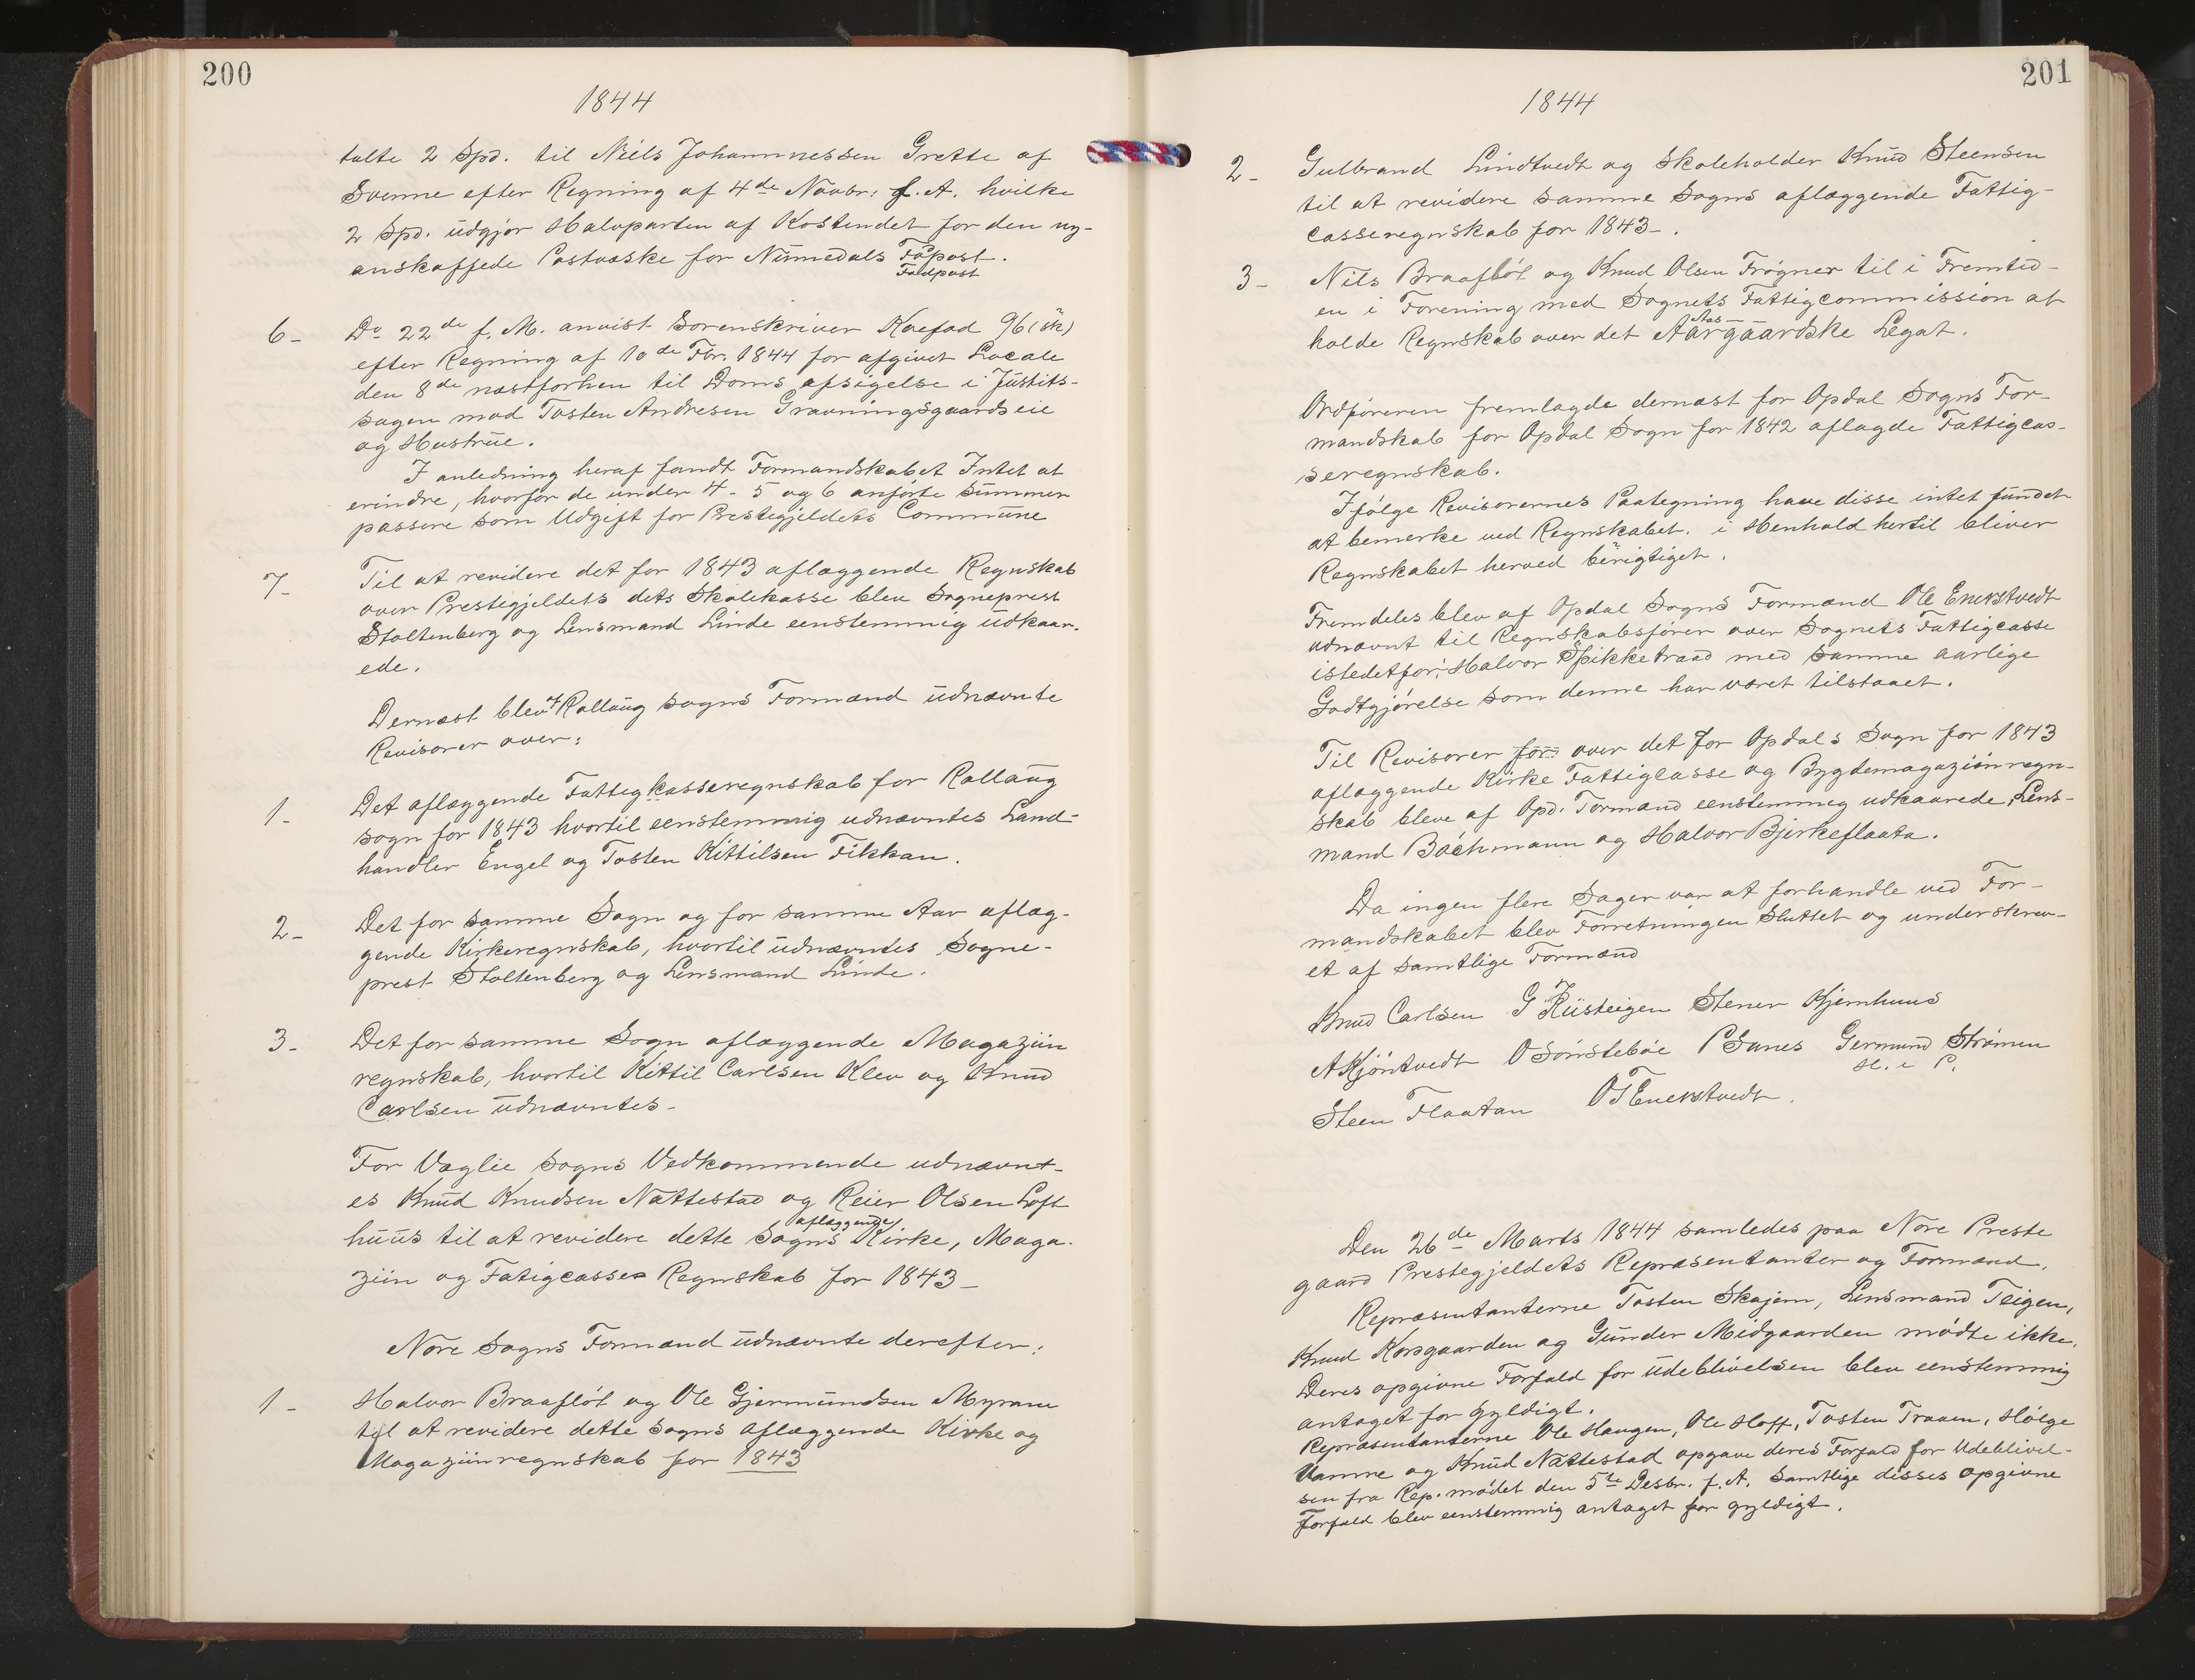 200
1844
talte 2 Spd. til Niels Johannessen Grette af
Svenne efter Regning af 4de Novbr: f. A. hvilke
2 Spd. udgjør Halvparten af Kostendet for den ny-
anskaffede Postvæske for Nummedals Fodpost.
Fodpost
6- Do 22de f. M. anvist Sorenskriver Koefod 96 (sk)
efter Regning af 10de Fbr. 1844 for afgivet Locale
den 8de næstforhen til Doms afsigelse i Justits-
sagen mod Tosten Andresen Gravningsgaardseie
og Hustrue.
I anledning heraf fandt Formandskabet Intet at
erindre, hvorfor de under 4- 5 og 6 anførte Summer
passere som Udgift for Prestegjeldets Commune
7- Til at revidere det for 1843 aflæggende Regnskab
over Prestegjeldets dets Skolekasse blev Sogneprest
Stoltenberg og Lensmand Linde eenstemmig udkaar-
ede.
Dernæst blev af Rollaug sogns Formænd udnævnte
Revisorer over:
1- Det aflæggende Fattigkasseregnskab for Rollaug
sogn for 1843 hvortil eenstemmig udnævntes Land-
handler Engel og Tosten Kittilsen Fikkan.
2- Det for samme Sogn og for samme Aar aflæg-
gende Kirkeregnskab, hvortil udnævntes Sogne-
prest Stoltenberg og Lensmand Linde.
3- Det for samme Sogn aflæggende Magaziin
regnskab, hvortil Kittil Carlsen Klev og Knud
Carlsen udnævntes-
For Væglie Sogns Vedkommende udnævnt-
es Knud Knudsen Nattestad og Reier Olsen Loft
huus til at revidere dette Sogns aflæggende Kirke, Maga-
ziin og Fatigcasses Regnskab for 1843-
Nore Sogns Formænd udnævnte derefter:
1- Halvor Braafløt og Ole Gjermundsen Myrane
til at revidere dette sogns aflæggende Kirke og
Magaziinregnskab for 1843
201
1844
2- Gulbrand Lindtvedt og Skoleholder Knud Steensen
til at revidere samme Sogns aflæggende Fattig-
casseregnskab for 1843-.
3- Nils Braafløt og Knud Olsen Frøgner til i Fremtid-
en i Forening med Sognets Fattigcommission at
Aas-
holde Regnskab over det Aargaardske Legat.
Ordføreren fremlagde dernæst for Opdal Sogns For-
mandskab for Opdal Sogn for 1842 aflagde Fattigcas-
seregnskab.
Ifølge Revisorernes Paategning have disse intet fundet
at bemerke ved Regnskabet. i Henhold hertil bliver
Regnskabet herved berigtiget.
Fremdeles blev af Opdal Sogns Formænd Ole Enerstvedt
udnævnt til Regnskabsfører over Sognets Fattigcasse
istedetfor: Halvor Spikketraad med samme aarlige
Godtgjørelse som denne har været tilstaaet.
Til Revisorer for over det for Opdals Sogn for 1843
aflæggende Kirke Fattigcasse og Bygdemagaziinregn-
skab bleve af Opd. Formænd eenstemmig udkaarede, Lens-
mand Bachmann og Halvor Bjerkeflaata.
Da ingen flere Sager var at forhandle ved For-
mandskabet blev Forretningen sluttet og underskrev-
et af samtlige Formænd
Knud Carlsen G Kiisteigen Stener Kjemhuus
A Kjøntvedt O Sønstebøe P Sanes Germund Strømen
H. i P.
Steen Flaatan O T Enerstvedt.
Den 26de Marts 1844 samledes paa Nore Preste
gaard Prestegjeldets Repræsentanter og Formænd.
Repræsentanterne Tosten Skajem, Lensmand Teigen,
Knud Korsgaarden og Gunder Midgaarden mødte ikke.
Deres opgivne Forfald for udeblivelsen blev eenstemmig
antaget for gyldigt.
Repræsentanterne Ole Haugen, Ole Hoff, Tosten Traaen, Hølge
Vamre og Knud Nattestad opgave deres Forfald for Udeblivel-
sen fra Rep. mødet den 5te Desbr. f. A. Samtlige disses opgivne
Forfald blev eenstemmig antaget for gyldigt.